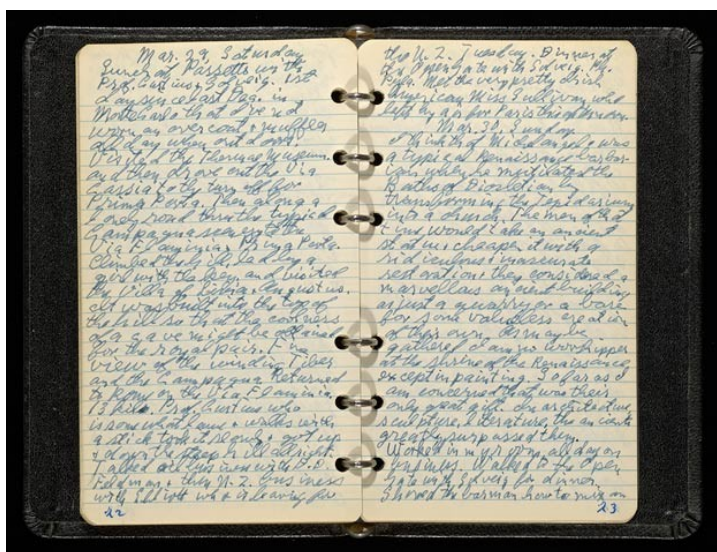 Mar. 29, Saturday
Lunch at Passetto with
Prof. Curtius, Solveig. 1st
day since last Dec. in
Monte Carlo that I've not
worn an overcoat & muffler
all day when outdoors.
Visited the Thermae Museum
and then drove out the Via
Cassia to the turn off for
Prima Porta. Then along a
lonely road thru the typical
Campagna scenery to the
Via Flaminia & Prima Porta.
Climbed the hill led by a
girl with the key and visited
the Villa of Livia & Augustus.
It was built into the top of
the hill so that the coolness
of a cave might be obtained
for the royal pair. Fine
view of the winding Tiber
and the Campagna. Returned
to Rome on the Via Flaminia
13 kilo. Prof. Curtius who
is somewhat lame & walks with
a stick took it slowly & got up
& down the steep hill alright.
Talked business with
Feldman & then N.Z. business
with Elliott who is leaving for
22
the N.Z. Tuesday. Dinner at
the Open Gate with Solveig.
Met the very pretty Irish
American Miss Sullivan who
left by a.p. for Paris this afternoon.
Mar. 30, Sunday
I think that Michelangelo was
a typical Renaissance barbar-
ian when he mutilated the
Baths of Diocletian by
transforming the Tepidarium
into a church. The men of that
time would take an ancient
statue & cheapen it with a
ridiculous & inaccurate
restoration & they considered a
marvellous ancient building
as just a quarry or a base
for some valueless creation
of their own. As may be
gathered I am no worshipper
at the shrine of the Renaissance
except in painting. So far as I
am concerned that was their
only great gift. In architecture,
sculpture & literature, the ancients
greatly surpassed them.
Worked in my room all day on
Walked to the Open
Gate with Solveig for dinner.
Showed the barman how to mix an
23